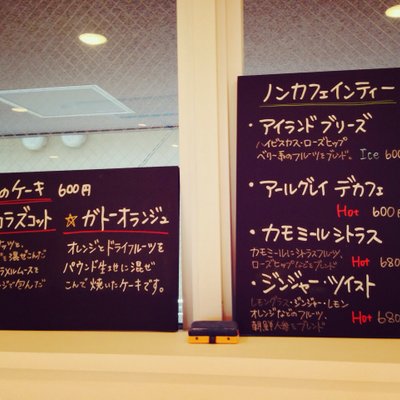 のケーキ 600円
コラズコット
☆ガトーオランジュ
オレンジとドライフルーツを
パウンド生地に混ぜ
こんで焼いたケーキです。
ラメルムースと
で包んだ
ノンカフェインティー
・アイランド ブリーズ
ハイビスカス・ローズヒップ
ベリー系のフルーツをブレンド。 Ice 600
・アールグレイ デカフェ
Hot 600円
・カモミール シトラス
カモミールにシトラスフルーツ、
ローズヒップなどをブレンド Hot 680
・ジンジャー・ツイスト
レモングラス・ジンジャー・レモン
オレンジなどのフルーツ、 Hot 680
朝鮮人参をブレンド